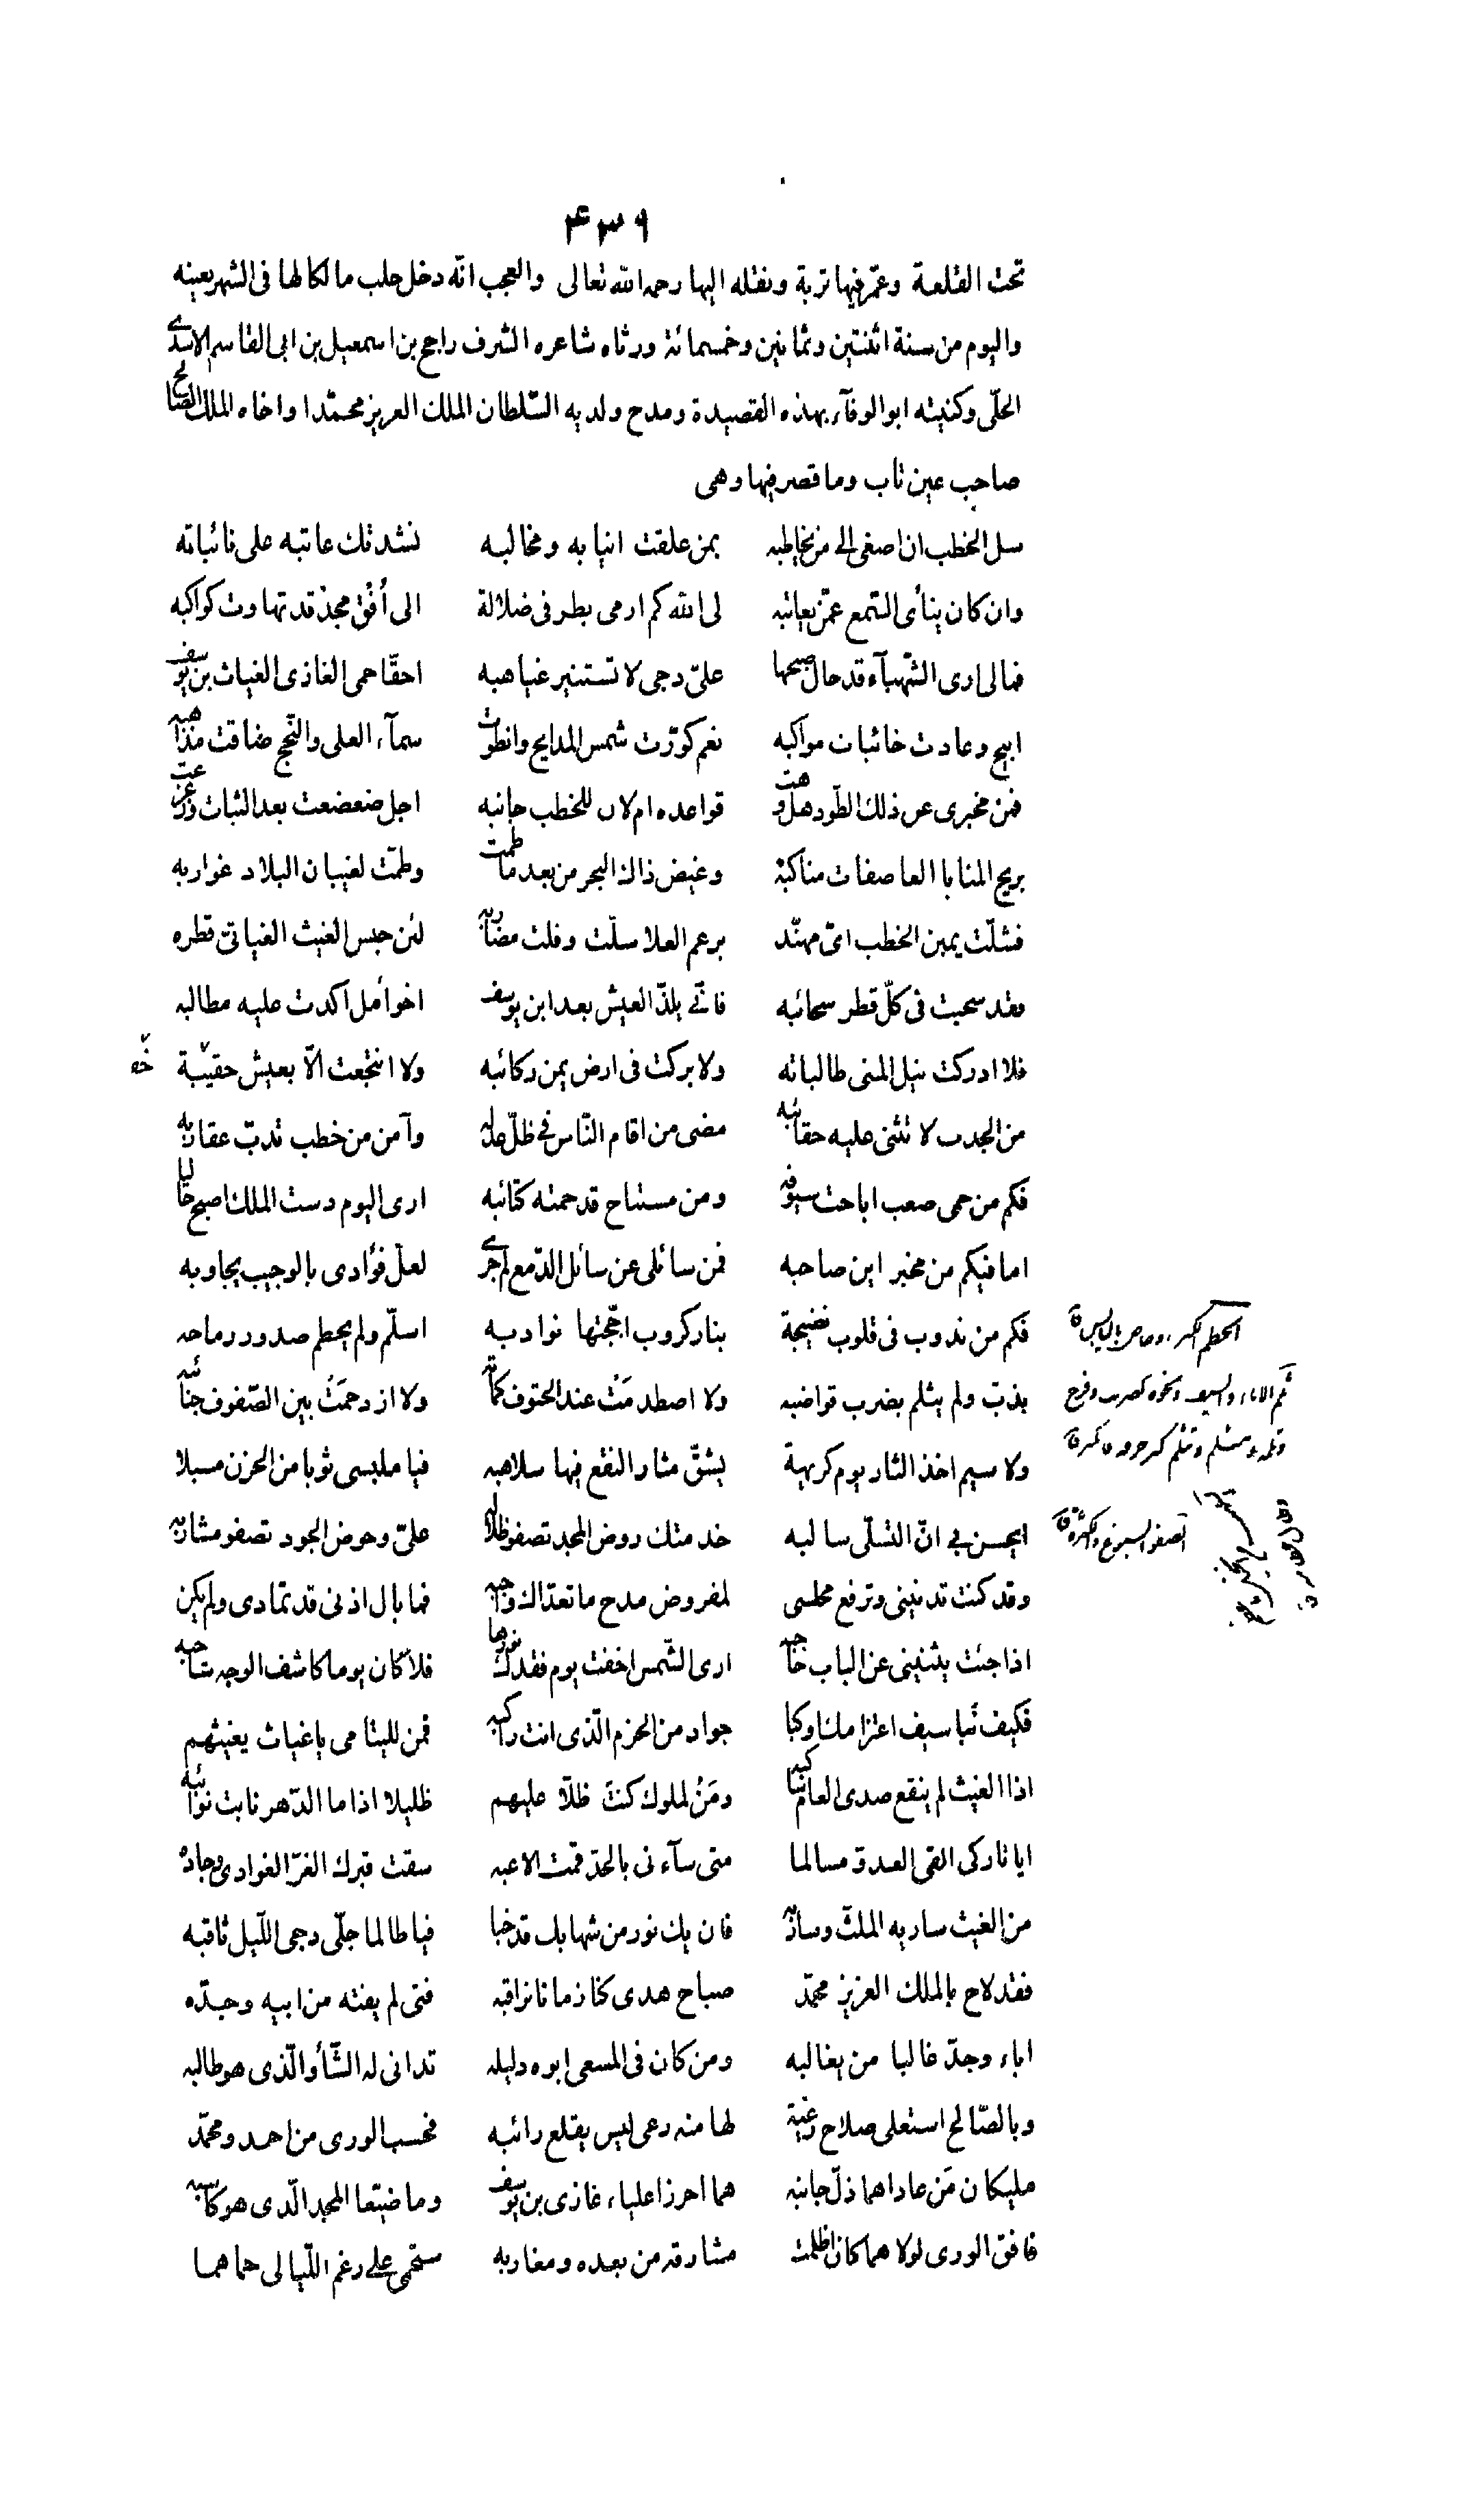 ٤٣٩
تحت القلعة وعمّر فيها تربة ونقله اليها رحمه الله تعالى والعجب انّه دخل حلب مالكا لها فى الشهر بعينه
واليوم من سنة اثنتين وثمانين وخمسمائة ورثاه شاعره الشرف راجح بن اسمعيل بن ابى القاسم الاسدى
الحلّى وكنيته ابو الوفآء بهذه القصيدة ومدح ولديه السّلطان الملك العزيز محمّدا واخاه الملك الصالح
صاحب عين تاب وما قصر فيها وهى
سل الخطب ان اصغى الى من يخاطبه بمن علقت انيابه ومخالبه نشدتك عاتبه على نائباته
وان كان ينأى السّمع عمّن يعاتبه لى الله كم ارمى بطرفى ضلالة الى أفُق مجد قد تهاوت كواكبه
فمالى ارى الشّهبآء قد حال صبحها علىّ دجى لا تستنير غياهبه احقّا حمى الغازى الغياث بن يوسف
ابيح وعادت خائبات مواكبه نعم كوّرت شمس المدايح وانطوت سمآء العلى والنّجح ضاقت مذاهبه
فمن مخبرى عن ذلك الطّود هل وهت قواعده ام لان للخطب جانبه اجل ضعضعت بعد الثبات وزعزعت
بريح المنايا العاصفات مناكبه وغيض ذاك البحر من بعد ما طمت وطمّت لغيبان البلاد غواربه
فشلّت يمين الخطب اىّ مهنّد برغم العلا سلّت وفلت مضاربه لئن حبس الغيث الغياثىّ قطره
فقد سحبت فى كلّ قطر سحائبه فانّى يلذّ العيش بعد ابن يوسف اخو أمل اكدت عليه مطالبه
فلا ادركت نيل المنى طالباته ولا بركت فى ارض يمن ركائبه ولا انتجعت الّا بعيش حقيبة
من الجدب لا تثنى عليه حقائبه مضى من اقام النّاس فى ظلّ عدله وآمن من خطب تدبّ عقاربه
فكم من حمى صعب اباحت سيوفه ومن مستباح قد حمته كتائبه ارى اليوم دست الملك اصبح خاليا
اما فيكم من مخبر اين صاحبه فمن سائلى عن سائل الدّمع لم جرى لعلّ فؤادى بالوجيب يجاوبه
فكم من ندوب فى قلوب نضيجة بنار كروب اجّجتها نوادبه اسلّم ولم يحطم صدور رماحه
بذبّ ولم يثلم بضرب قواضبه ولا اصطدمَتْ عند الحتوف كماته ولا ازدحمَتْ بين الصّفوف جنائبه
ولا سيم اخذ الثار يوم كريهة يشقّ مثار النقع فيها سلاهبه فيا ملبسى ثوبا من الحزن مسبلا
ايحسن بى انّ التسلّى سالبه خدمتك روض المجد تصفو ظلاله علىّ وحوض الجود تصفو مشاربه
وقد كنت تدنينى وترفع مجلسى لمفروض مدح ما تعدّاك واجبه فما بال اذنى قد تمادى ولم يكن
اذا جئت يثنينى عن الباب حاجبه ارى الشّمس اخفت يوم فقدك نورها فلا كان يوما كاشف الوجه شاحبه
فكيف نبا سيف اعتزامك او كبا جواد من الحزم الّذى انت راكبه فمن لليتامى يا غياث يغيثهم
اذا الغيث لم ينقع صدى العام ساكبه ومَنْ لملوك كنتَ ظلّا عليهم ظليلا اذا ما الدّهر نابت نوائبه
ايا تاركى القى العدوّ مسالما متى سآءنى بالجدّ قمت الاعبه سقت قبرك الغرّ الغوادى وجاده
من الغيث ساريه الملثّ وساربه فان يك نور من شهابك قد خبا فيا طالما جلّى دجى اللّيل ثاقبه
فقد لاح بالملك العزيز محمّد صباح هدى كنا زمانا نراقبه فتى لم يفته من ابيه وجدّه
اباء وجدّ غالبا من يغالبه ومن كان فى المسعى ابوه دليله تدانى له الشّأو الّذى هو طالبه
وبالصّالح استعلى صلاح رعيّة لها منه رعى ليس يقلع رائبه فحسب الورى من احمد ومحمّد
مليكان مَن عاداهما ذلّ جانبه هما احرزا علياء غازى بن يوسف وما ضيّعا المجد الّذى هو كاسبه
فافق الورى لولاهما كان اظلمت مشارقه من بعده ومغاربه ستحمى على رغم اللّيالى حماهما